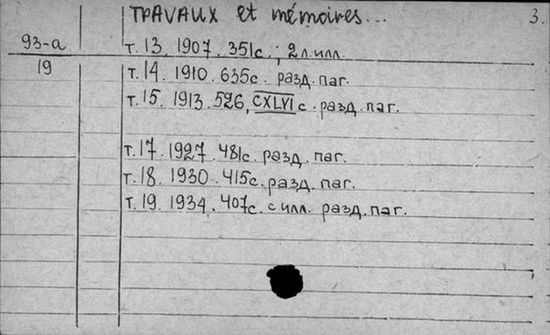 TRAVAUX et mémoires...
3.
93-a
19
т. 13. 1907. 351с.; 2 л. илл.
т. 14. 1910. 635с. разд. паг.
т. 15. 1913. 526, CXLVI с. разд. паг.
т. 17. 1927. 481с. разд. паг.
т. 18. 1930. 415с. разд. паг.
т. 19. 1934. 407с. с илл. разд. паг.